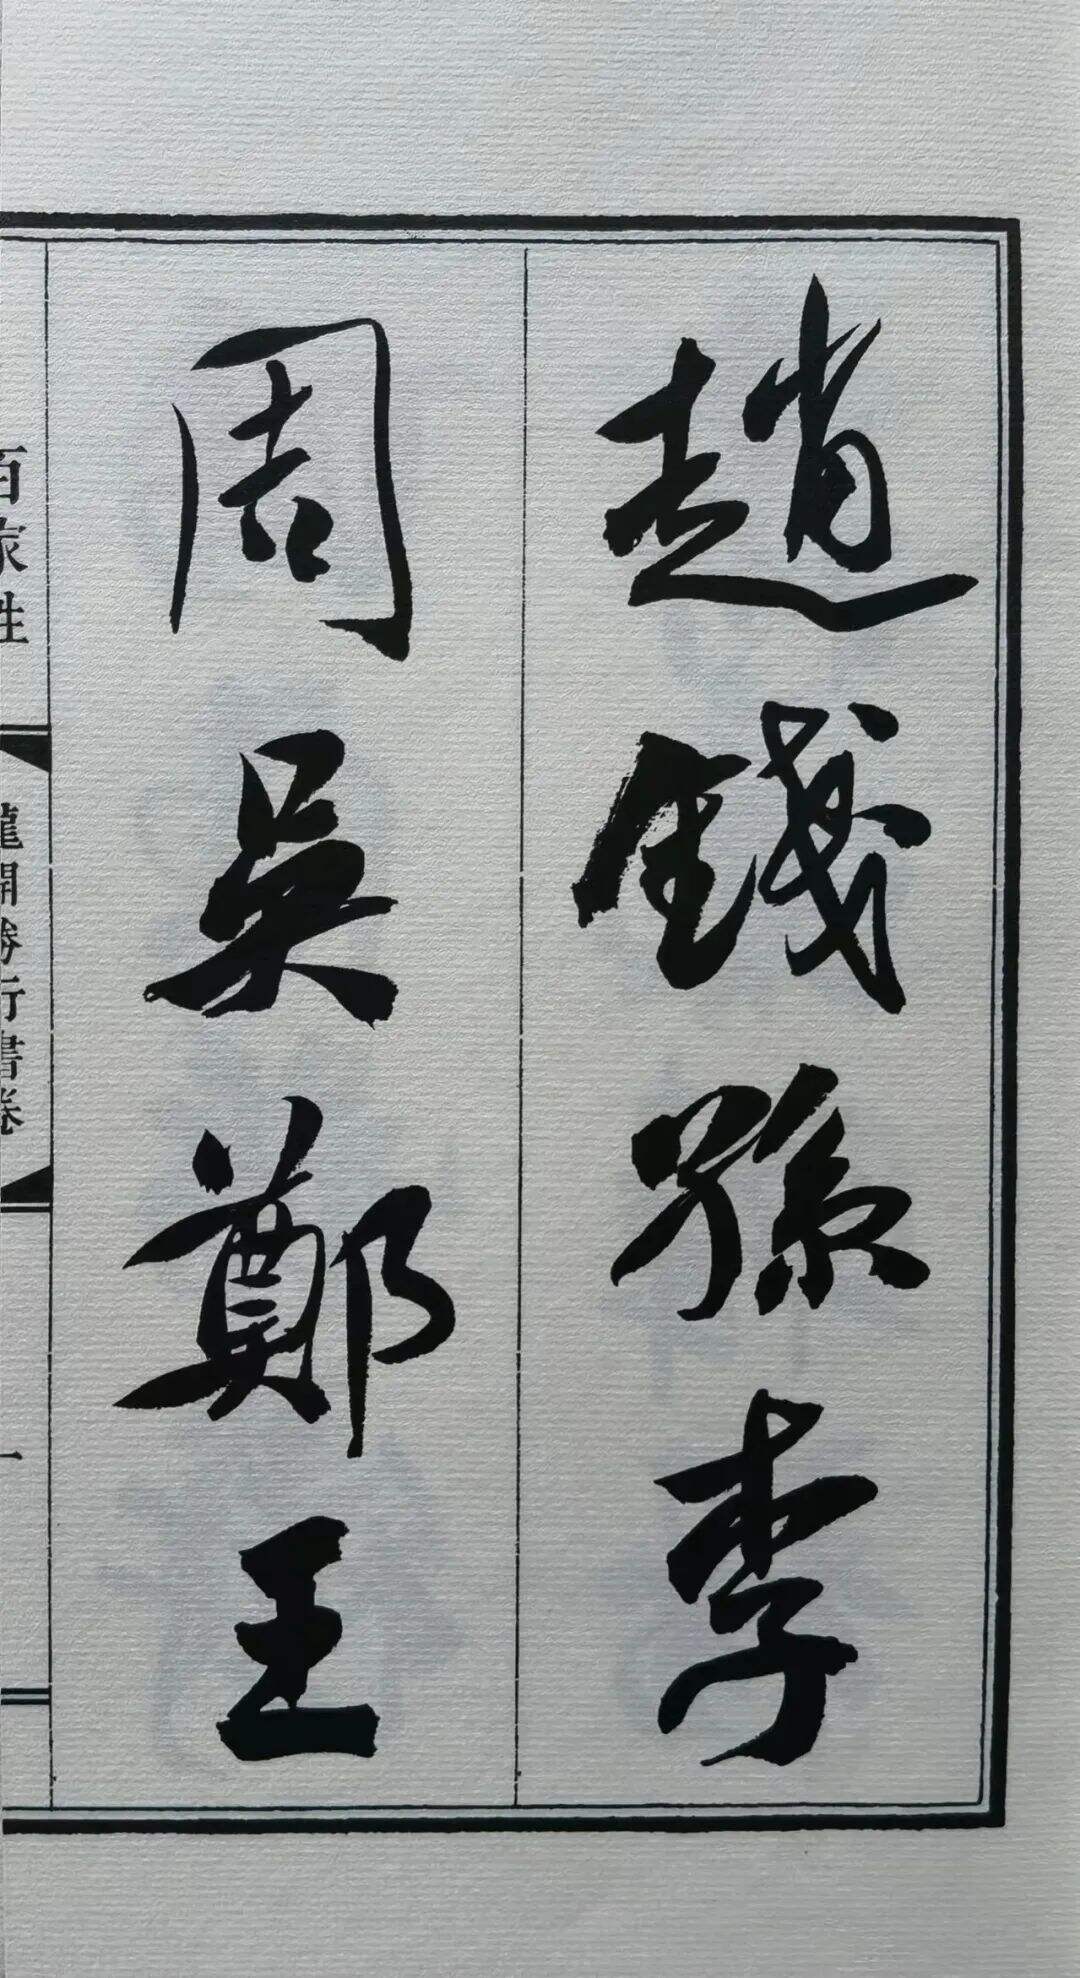 趙錢孫李
周吳鄭王
百家姓
龍開勝行書卷
一